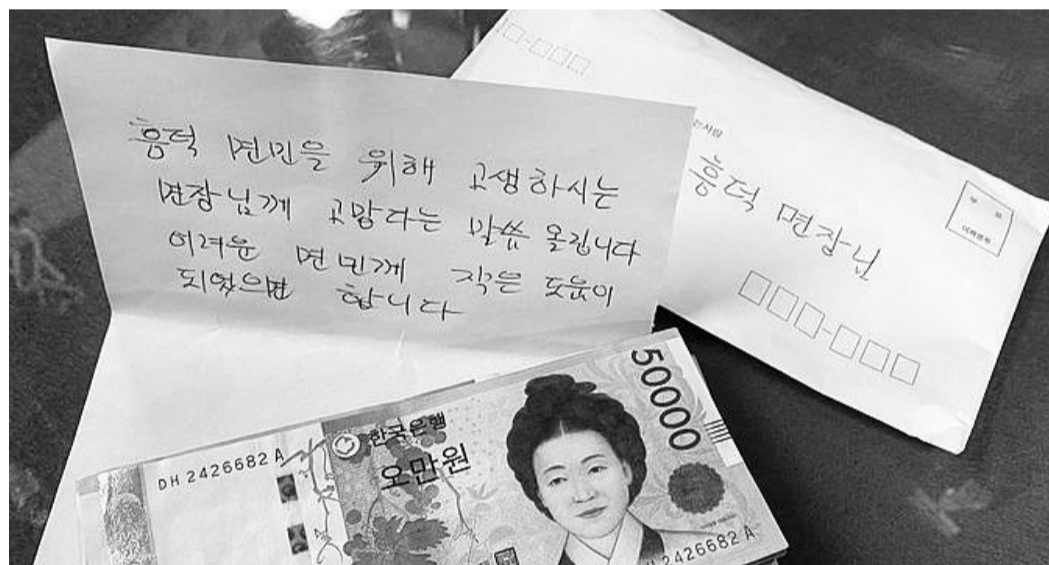 흥덕 면민을 위해 고생하시는
면장님께 고맙다는 말씀 올립니다
어려운 면민께 작은 도움이
되었으면 합니다
는사람
흥덕 면장님
우 표
한국은행
오만원
50000
DH 2426682 A
2426682 A